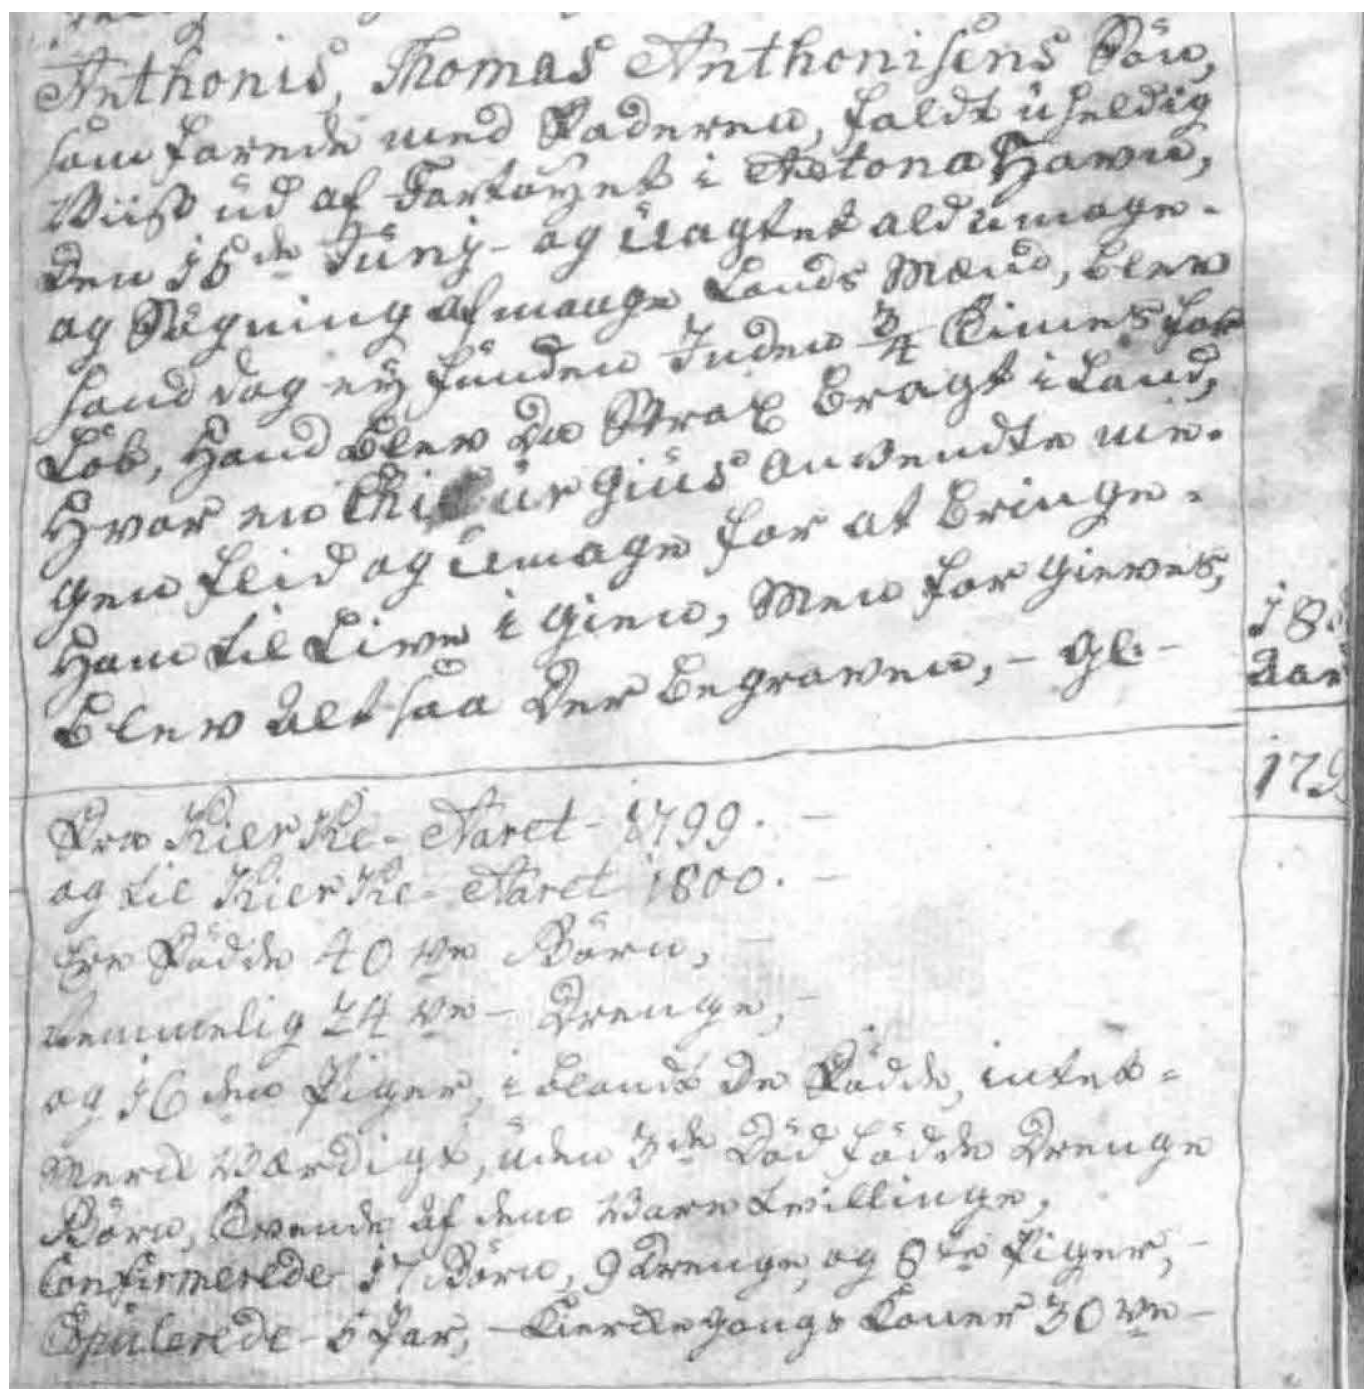 Anthonis, Thomas Anthonisens Sön,
som farede med Faderen, faldt uheldig
Viiss ud af Fartöyet i Altona Hawn,
den 15de Junij - og uagtet ald umage -
og Sögning af mange Lands Mænd, blew
hand dog ey funden Inden 3/4 Times for
Löb, Hand blew da Strax bragt i Land,
Hvor en Chirurgius anwendte me-
gen fliid og umage for at bringe -
Ham til Liwe i gien, Men for giewes,
Blew alt saa Der begrawen, - gl. -
18
aar
179
Fra Kierke-Aaret - 1799. -
og til Kierke-Aaret 1800. -
Ere Födde 40 ve Börn,
nemmelig 24 ve - Drenge, -
og 16 den Piger, i blandt De Födde, intet -
Merk Værdigt, uden 3de Död födde Drenge
Börn, Twende af dem Vare twillinge,
Confirmerede 17 Börn, 9 Drenge, og 8te Piger, -
Copulerede - 5 Par, - Kierkegangs Koner 30 ve -